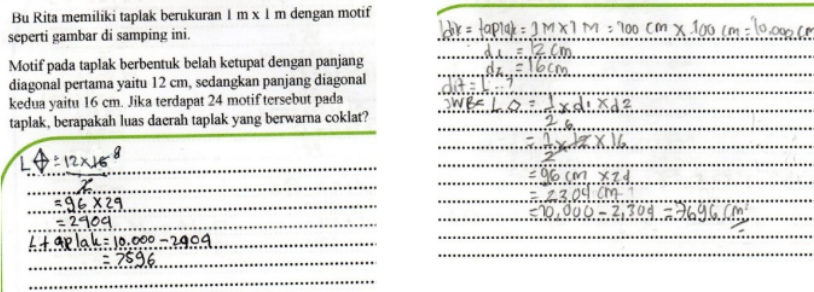 Bu Rita memiliki taplak berukuran 1 m x 1 m dengan motif
seperti gambar di samping ini.
Motif pada taplak berbentuk belah ketupat dengan panjang
diagonal pertama yaitu 12 cm, sedangkan panjang diagonal
kedua yaitu 16 cm. Jika terdapat 24 motif tersebut pada
taplak, berapakah luas daerah taplak yang berwarna coklat?
= 12 x 16 8
2
= 96 x 29
= 2909
L taplak = 10.000 - 2909
= 7596
dik = taplak = 1 M x 1 M = 100 cm x 100 cm = 10.000 cm
d1 = 12 cm
d2 = 16 cm
dit = L..?
JWB = L ◇ = 1/2 x d1 x d2
= 1/2 x 12 6 x 16
= 96 cm x 24
= 2304 cm
= 10,000 - 2,304 = 7696 cm²